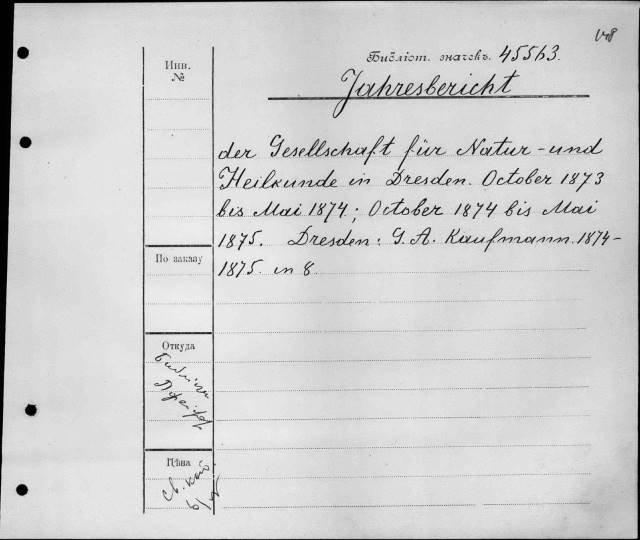 Библіот. значекъ. 45563.
Jahresbericht
Инв.
№
der Gesellschaft für Natur-und
Heilkunde in Dresden. October 1873
bis Mai 1874; October 1874 bis Mai
1875. Dresden: G. A. Kaufmann. 1874-
1875. in 8.
По заказу
Откуда
Цѣна